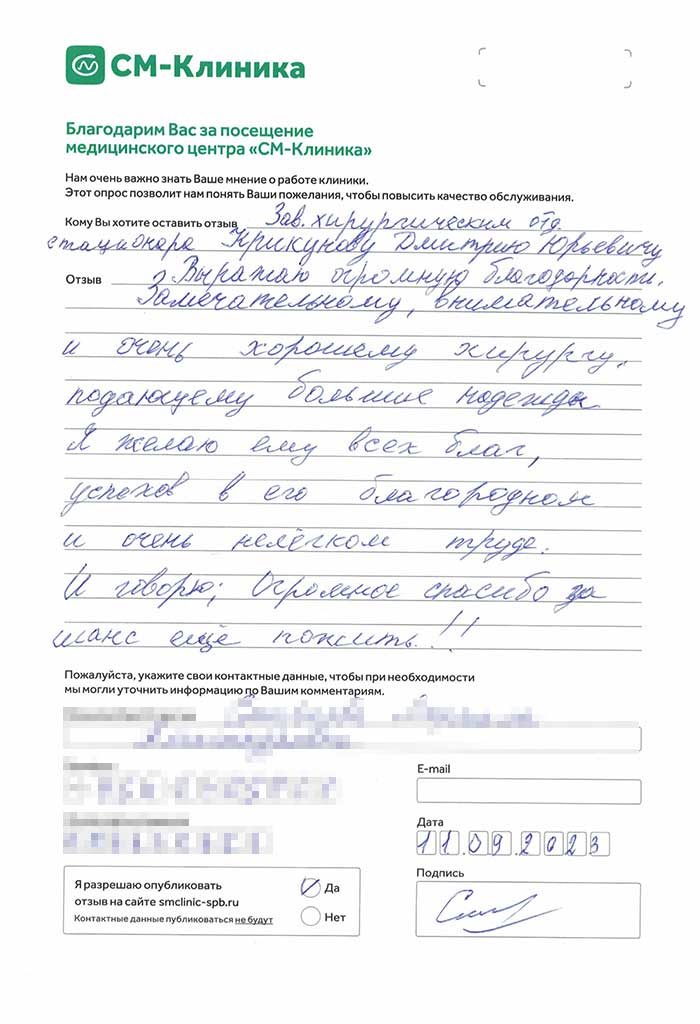 СМ-Клиника
Благодарим Вас за посещение
медицинского центра «СМ-Клиника»
Нам очень важно знать Ваше мнение о работе клиники.
Этот опрос позволит нам понять Ваши пожелания, чтобы повысить качество обслуживания.
Кому Вы хотите оставить отзыв Зав. хирургическим отд.
стационара Крикунову Дмитрию Юрьевичу
Отзыв Выражаю огромную благодарность.
Замечательному, внимательному
и очень хорошему хирургу,
подающему большие надежды
Я желаю ему всех благ,
успехов в его благородном
и очень нелёгком труде.
И говорю; Огромное спасибо за
шанс ещё пожить!!
Пожалуйста, укажите свои контактные данные, чтобы при необходимости
мы могли уточнить информацию по Вашим комментариям.
E-mail
Дата
11.09.2023
Подпись
Я разрешаю опубликовать
отзыв на сайте smclinic-spb.ru
Контактные данные публиковаться не будут
Да
Нет